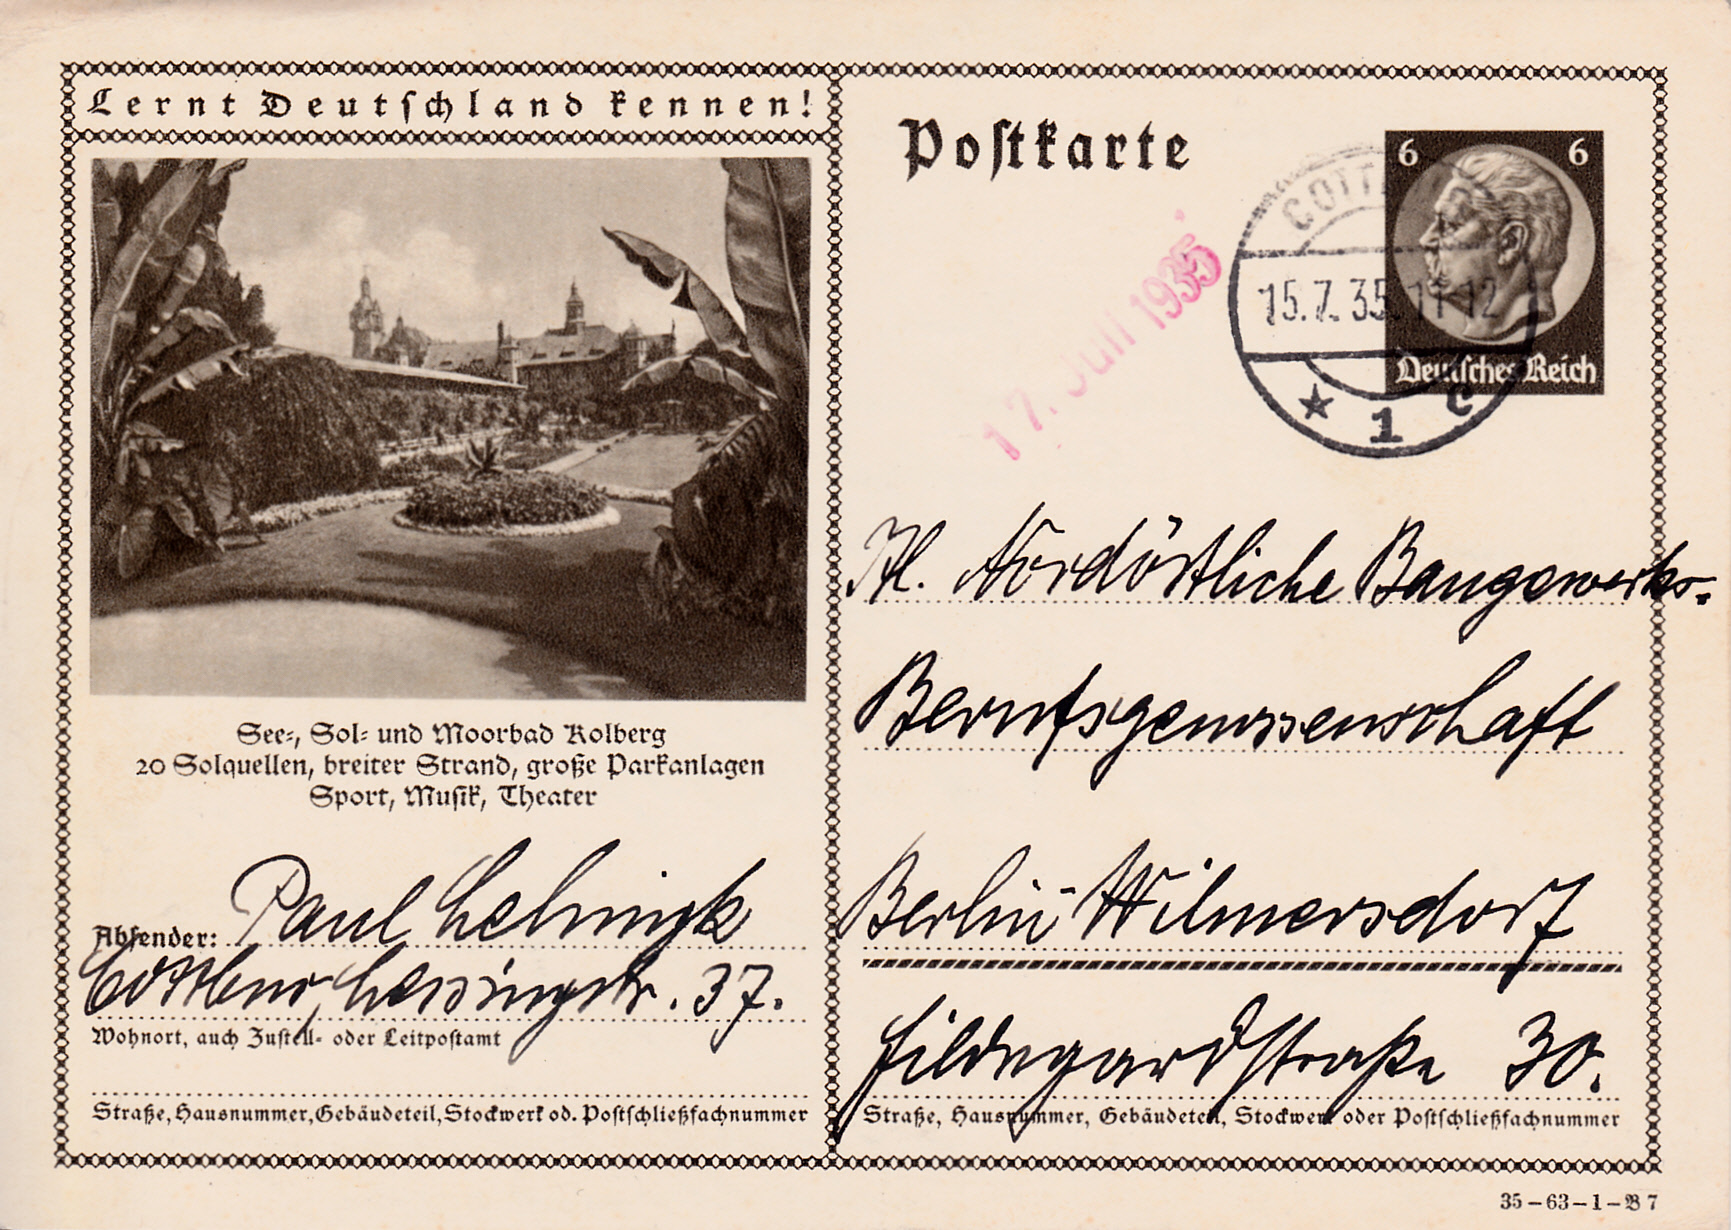 Lernt Deutschland kennen!
See-, Sol- und Moorbad Kolberg
20 Solquellen, breiter Strand, große Parkanlagen
Sport, Musik, Theater
Absender: Paul
Cottbus, Lessingstr. 37.
Wohnort, auch Zustell- oder Leitpostamt
Straße, Hausnummer, Gebäudeteil, Stockwerk od. Postschließfachnummer
Postkarte
6 6
Deutsches Reich
COTT
15.7.35. 11-12
★ 1 c
17. Juli 1935
Nordöstliche Baugewerks-
Berufsgenossenschaft
Berlin-Wilmersdorf
Hildegardstraße 30.
Straße, Hausnummer, Gebäudeteil, Stockwerk oder Postschließfachnummer
35-63-1-B7